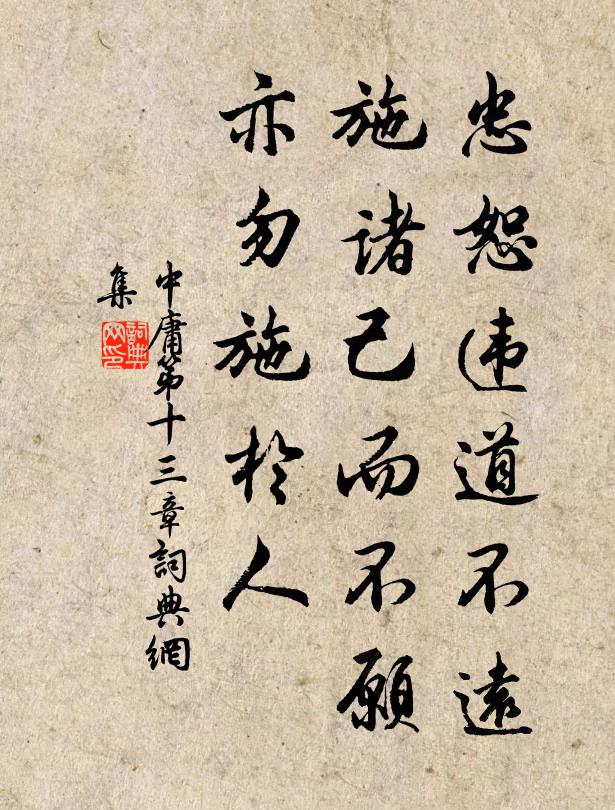 忠恕违道不遠
施诸己而不願
亦勿施於人
中庸第十三章詞典網
集
詞典
网印